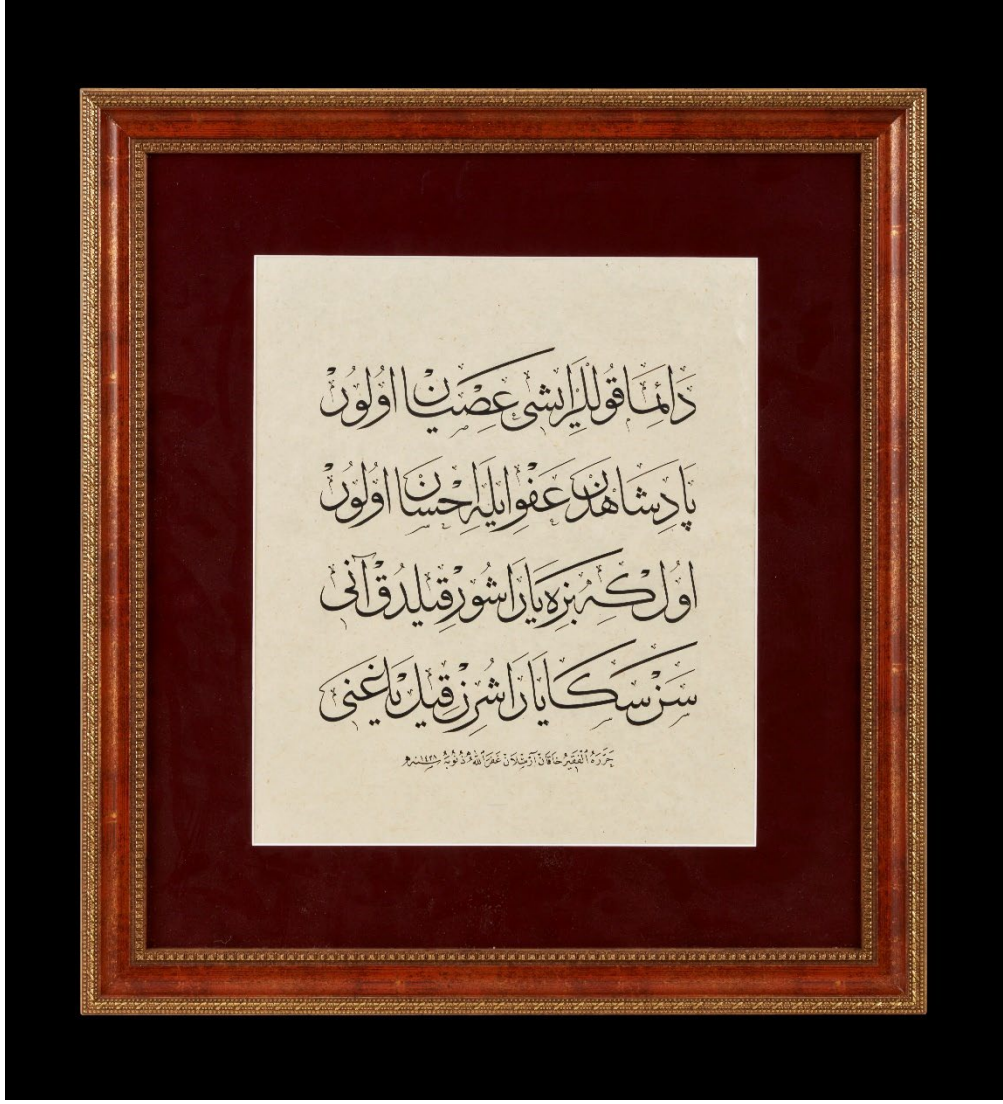 دَائِمَا قُوللَرِ ایشی عِصْیَانْ اوُلُورْ
پَادِشَاهْدَنْ عَفْو اِیلَه اِحْسَانْ اوُلُورْ
اوُلْ كِه بِزَه یَارَاشُورْ قِیلدُقْ آنی
سَنْ سَكَا یَارَاشَرِ قِیلْ یَا غَنِی
حَرَّرَهُ الْفَقِیرُ خَاقَانْ آرْسْلَانْ غَفَرَ اللهُ ذُنُوبَهُ سنه ١٤٣١